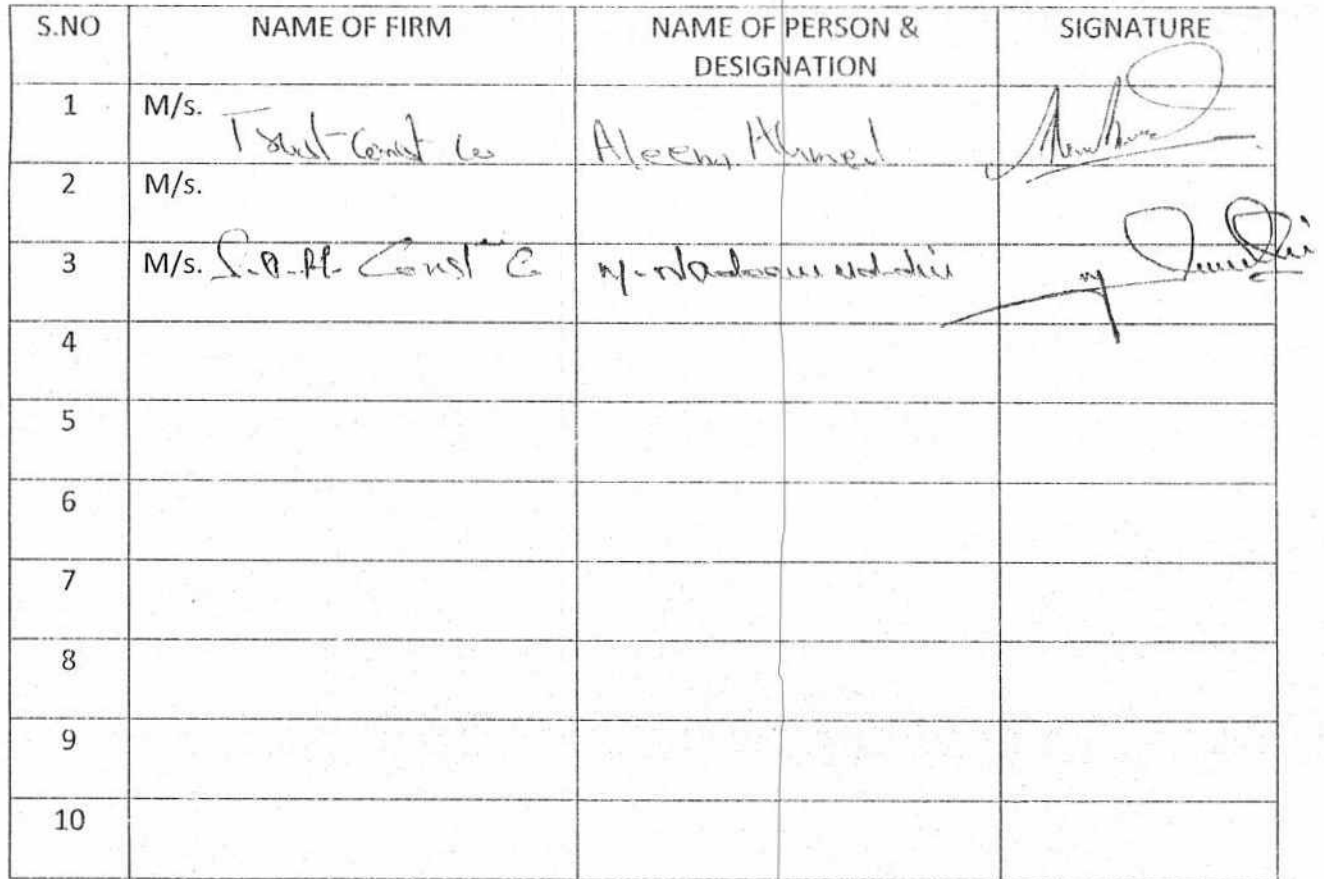 S.NO NAME OF FIRM NAME OF PERSON & DESIGNATION SIGNATURE
1 M/s. Trust Const Co Aleem Ahmed
2 M/s.
3 M/s. Const Co
4
5
6
7
8
9
10